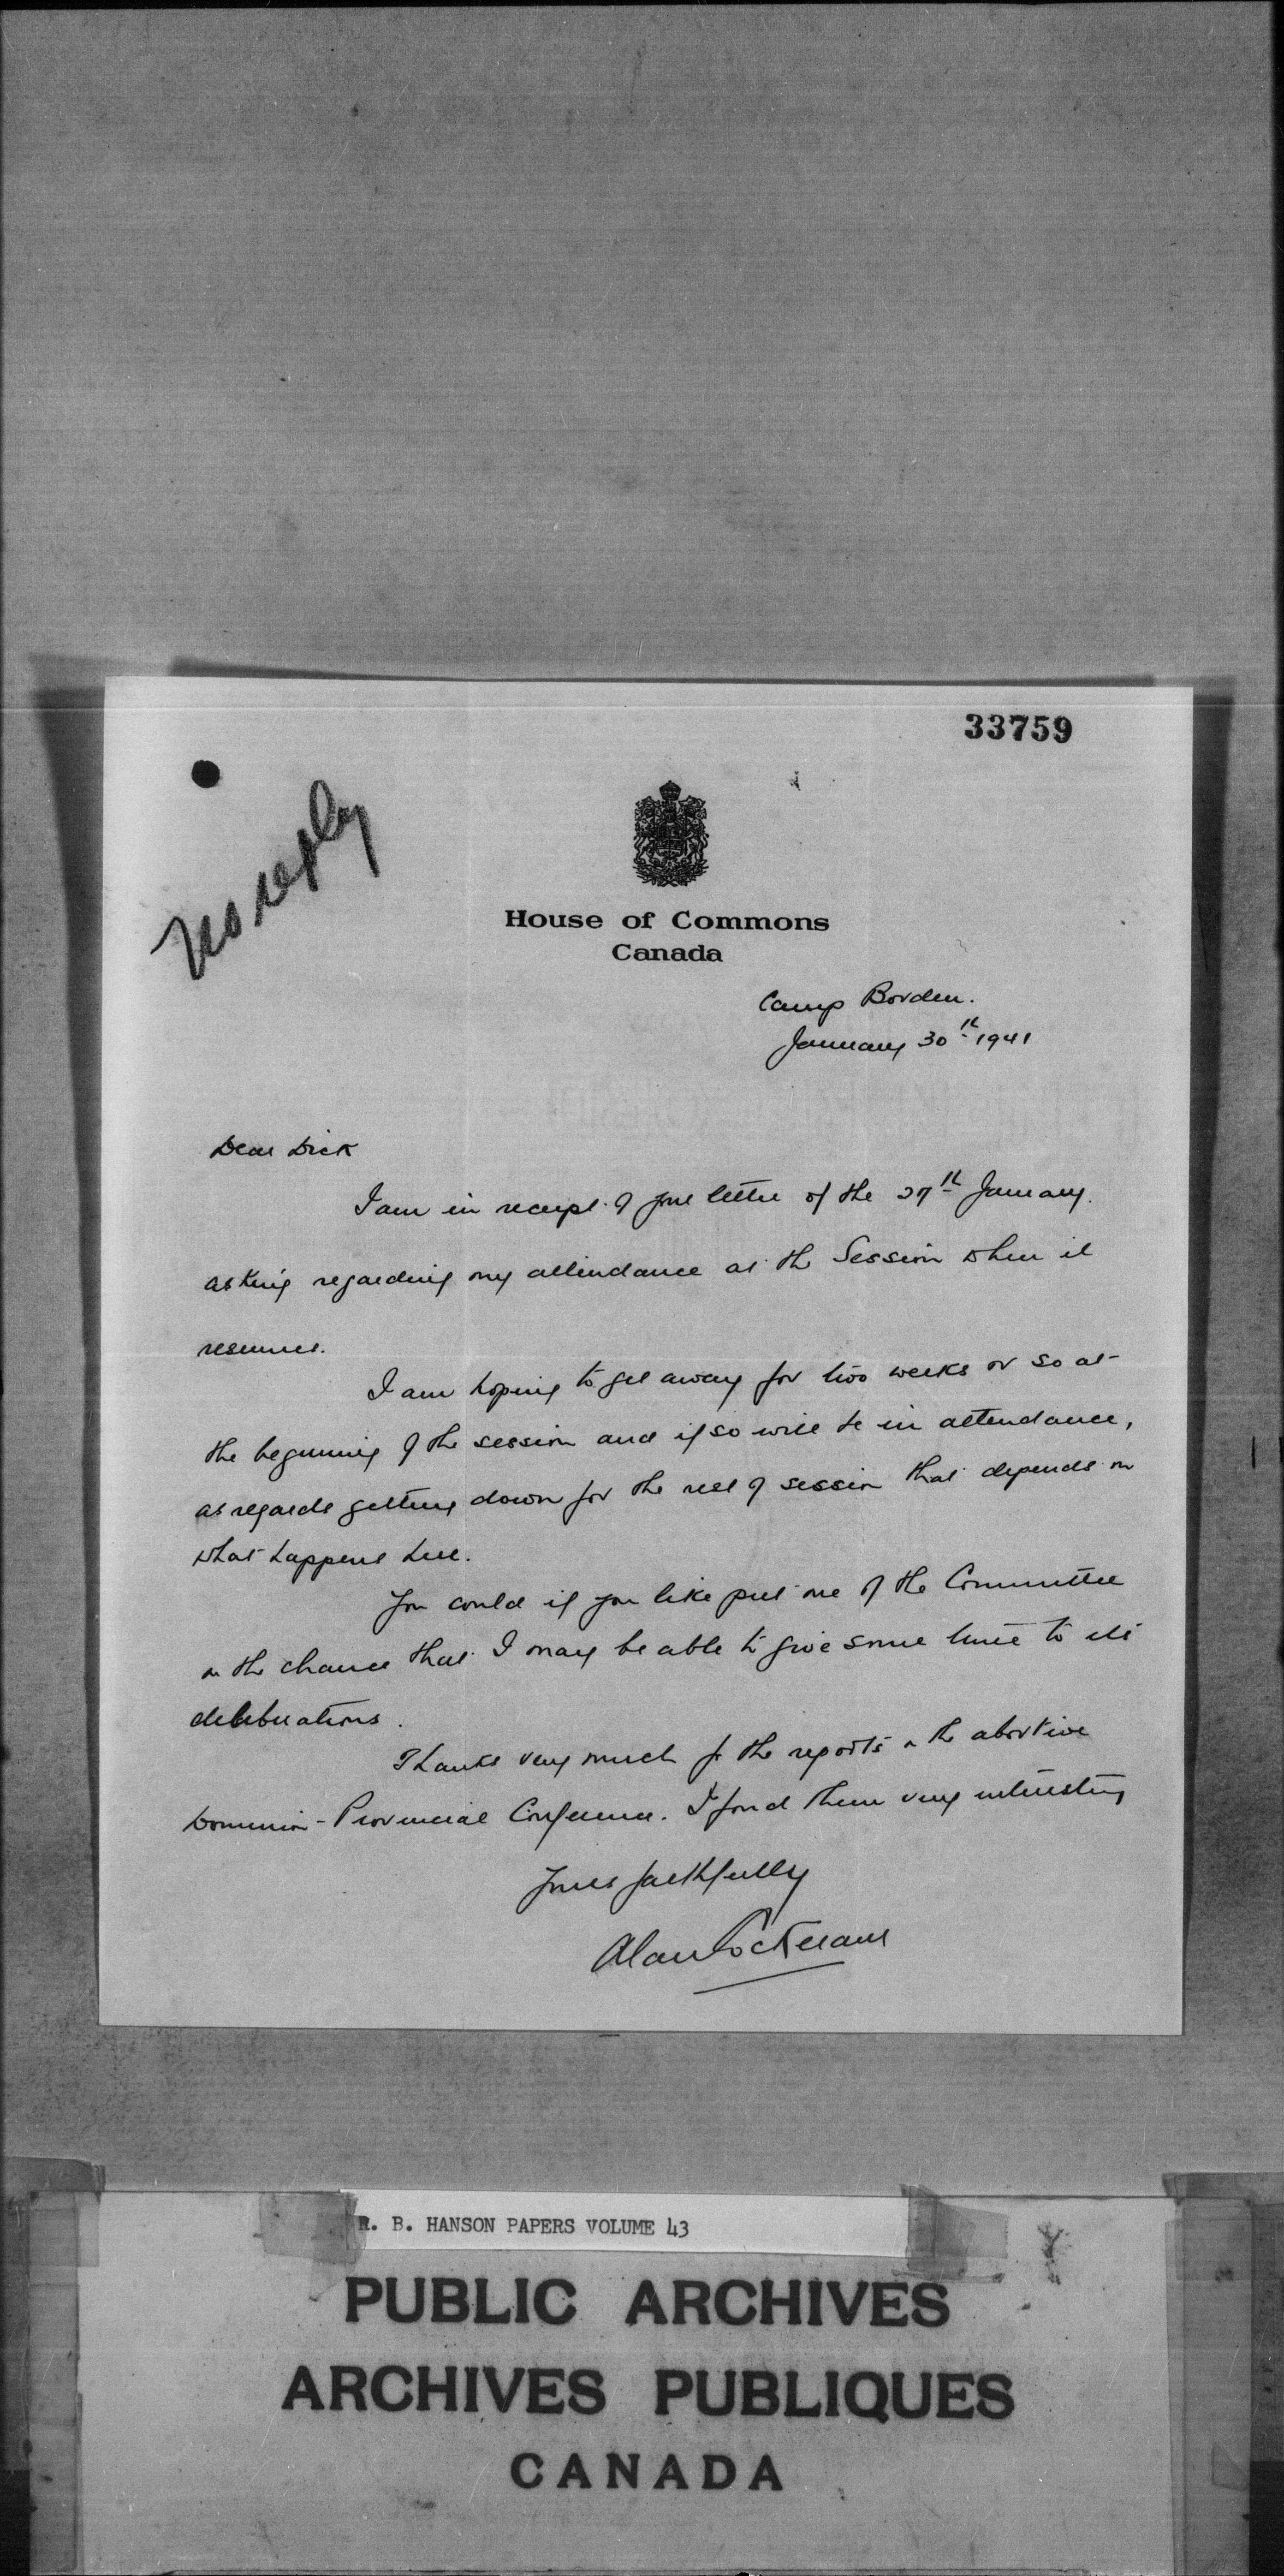 33759
No reply
House of Commons
Canada
Camp Borden.
January 30th 1941
Dear Dick
I am in receipt of your letter of the 27th January.
asking regarding my attendance at the Session when it
resumes.
I am hoping to get away for two weeks or so at
the beginning of the session and if so will be in attendance,
as regards getting down for the rest of session that depends on
what happens here.
You could if you like put me on the Committee
on the chance that I may be able to give some time to its
deliberations.
Thanks very much for the reports on the abortive
Dominion-Provincial Conference. I found them very interesting
Yours faithfully
Alan Cockeram
R. B. HANSON PAPERS VOLUME 43
PUBLIC ARCHIVES
ARCHIVES PUBLIQUES
CANADA